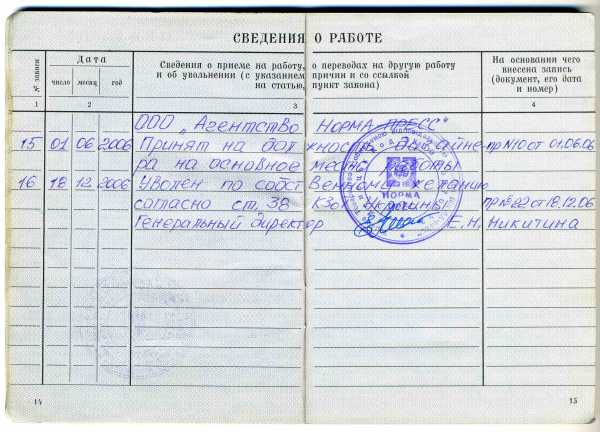 СВЕДЕНИЯ О РАБОТЕ
№ записи
Дата
число месяц год
Сведения о приеме на работу, о переводах на другую работу
и об увольнении (с указанием причин и со ссылкой
на статью, пункт закона)
На основании чего
внесена запись
(документ, его дата
и номер)
1 2 3 4
ООО „Агентство НОРМА-ПРЕСС"
15 01 06 2006 Принят на должность дизайне- пр №10 от 01.06.06
ра на основное место работы
16 18 12 2006 Уволен по собственному желанию
согласно ст. 38 КЗоТ Украины пр №22 от 18.12.06
Генеральный директор Е.Н. Никитина
НОРМА
14 15